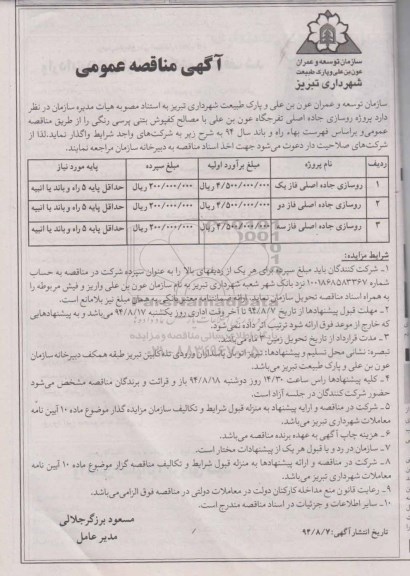 سازمان توسعه و عمران
عون بن علی و پارک طبیعت
شهرداری تبریز
آگهی مناقصه عمومی
سازمان توسعه و عمران عون بن علی و پارک طبیعت شهرداری تبریز به استناد مصوبه هیات مدیره سازمان در نظر
دارد پروژه روسازی جاده اصلی تفرجگاه عون بن علی با مصالح کفپوش بتنی پرسی رنگی را از طریق مناقصه
عمومی و براساس فهرست بهاء راه و باند سال ۹۴ به شرح زیر به شرکت‌های واجد شرایط واگذار نماید. لذا از
شرکت‌های صلاحیت دار دعوت می‌شود جهت اخذ اسناد مناقصه به دبیرخانه سازمان مراجعه نمایند.
ردیف نام پروژه مبلغ برآورد اولیه مبلغ سپرده پایه مورد نیاز
۱ روسازی جاده اصلی فاز یک ۴/۵۰۰/۰۰۰/۰۰۰ ریال ۲۰۰/۰۰۰/۰۰۰ ریال حداقل پایه ۵ راه و باند یا ابنیه
۲ روسازی جاده اصلی فاز دو ۴/۵۰۰/۰۰۰/۰۰۰ ریال ۲۰۰/۰۰۰/۰۰۰ ریال حداقل پایه ۵ راه و باند یا ابنیه
۳ روسازی جاده اصلی فاز سه ۴/۵۰۰/۰۰۰/۰۰۰ ریال ۲۰۰/۰۰۰/۰۰۰ ریال حداقل پایه ۵ راه و باند یا ابنیه
شرایط مزایده:
۱ـ شرکت کنندگان باید مبلغ سپرده برای هر یک از ردیفهای بالا را به عنوان سپرده شرکت در مناقصه به حساب
شماره ۱۰۰۱۸۶۸۵۸۳۳۶۷ نزد بانک شهر شعبه شهرداری تبریز به نام سازمان عون بن علی واریز و فیش مربوطه را
به همراه اسناد مناقصه تحویل سازمان نماید. ارائه ضمانتنامه معتبر بانکی به همان مبلغ نیز بلامانع است.
۲ـ مهلت قبول پیشنهادها از تاریخ ۹۴/۸/۷ تا آخر وقت اداری روز یکشنبه ۹۴/۸/۱۷ می‌باشد و به پیشنهادهایی
که خارج از موعد فوق ارائه شود ترتیب اثر داده نمی‌شود.
۳ـ مدت قرارداد از تاریخ تحویل زمین ۳ ماه می‌باشد.
تبصره: نشانی محل تسلیم و پیشنهادها: تبریز اتوبان پاسداران ورودی تله کابین تبریز طبقه همکف دبیرخانه سازمان
عون بن علی و پارک طبیعت تبریز می‌باشد.
۴ـ کلیه پیشنهادها راس ساعت ۱۴/۳۰ روز دوشنبه ۹۴/۸/۱۸ باز و قرائت و برندگان مناقصه مشخص می‌شود
حضور شرکت کنندگان در جلسه آزاد است.
۵ـ شرکت در مناقصه و ارایه پیشنهاد به منزله قبول شرایط و تکالیف سازمان مزایده گذار موضوع ماده ۱۰ آیین نامه
معاملات شهرداری تبریز می‌باشد.
۶ـ هزینه چاپ آگهی به عهده برنده مناقصه می‌باشد.
۷ـ سازمان در رد و یا قبول هر یک از پیشنهادات مختار است.
۸ـ شرکت در مناقصه و ارائه پیشنهادها به منزله قبول شرایط و تکالیف مناقصه گزار موضوع ماده ۱۰ آیین نامه
معاملات شهرداری تبریز می‌باشد.
۹ـ رعایت قانون منع مداخله کارکنان دولت در معاملات دولتی در مناقصه فوق الزامی می‌باشد.
۱۰ـ سایر اطلاعات و جزئیات در اسناد مناقصه مندرج است.
مسعود برزگر جلالی
تاریخ انتشار آگهی: ۹۴/۸/۷
مدیر عامل